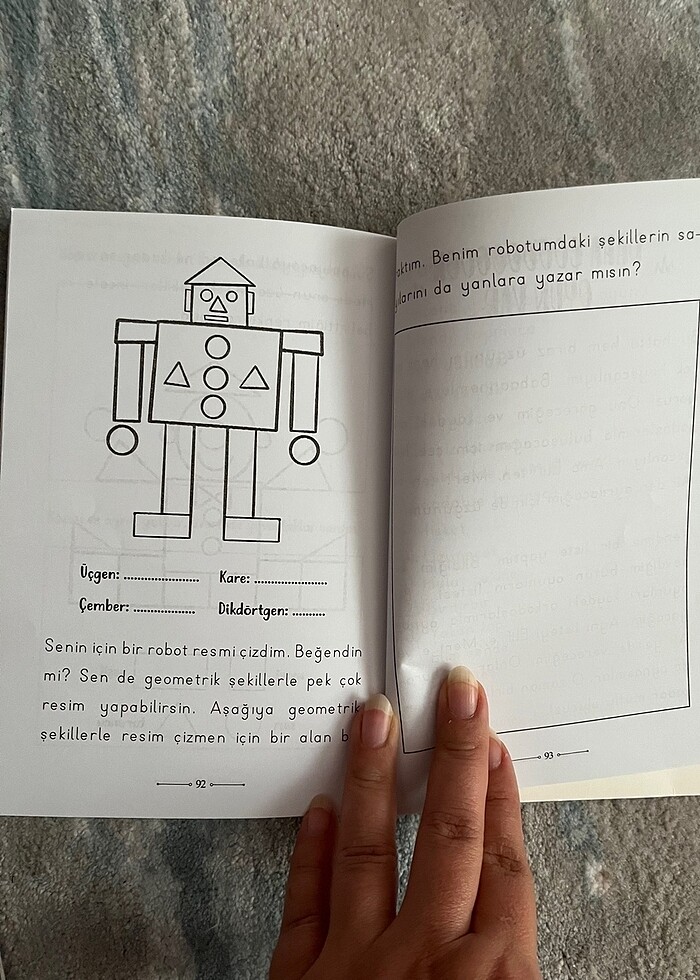 Üçgen: ........................ Kare: ........................
Çember: .................... Dikdörtgen: ..........
Senin için bir robot resmi çizdim. Beğendin
mi? Sen de geometrik şekillerle pek çok
resim yapabilirsin. Aşağıya geometrik
şekillerle resim çizmen için bir alan
92
Benim robotumdaki şekillerin sa-
da yanlara yazar mısın?
93